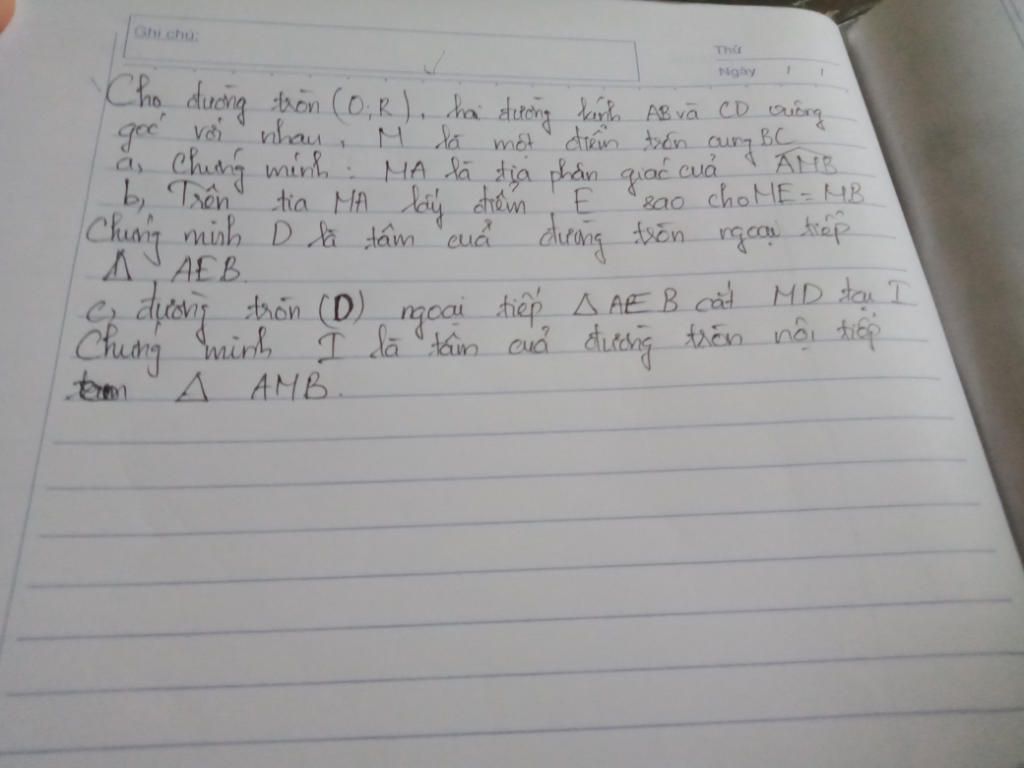 Ghi chú:
Thứ
Ngày / /
Cho đường tròn (O; R), hai đường kính AB và CD vuông
góc với nhau, M là một điểm trên cung BC
a, Chứng minh: MA là tia phân giác của AMB
b, Trên tia MA lấy điểm E sao cho ME = MB
Chứng minh D là tâm của đường tròn ngoại tiếp
Δ AEB.
c, đường tròn (D) ngoại tiếp Δ AEB cắt MD tại I
Chứng minh I là tâm của đường tròn nội tiếp
Δ AMB.